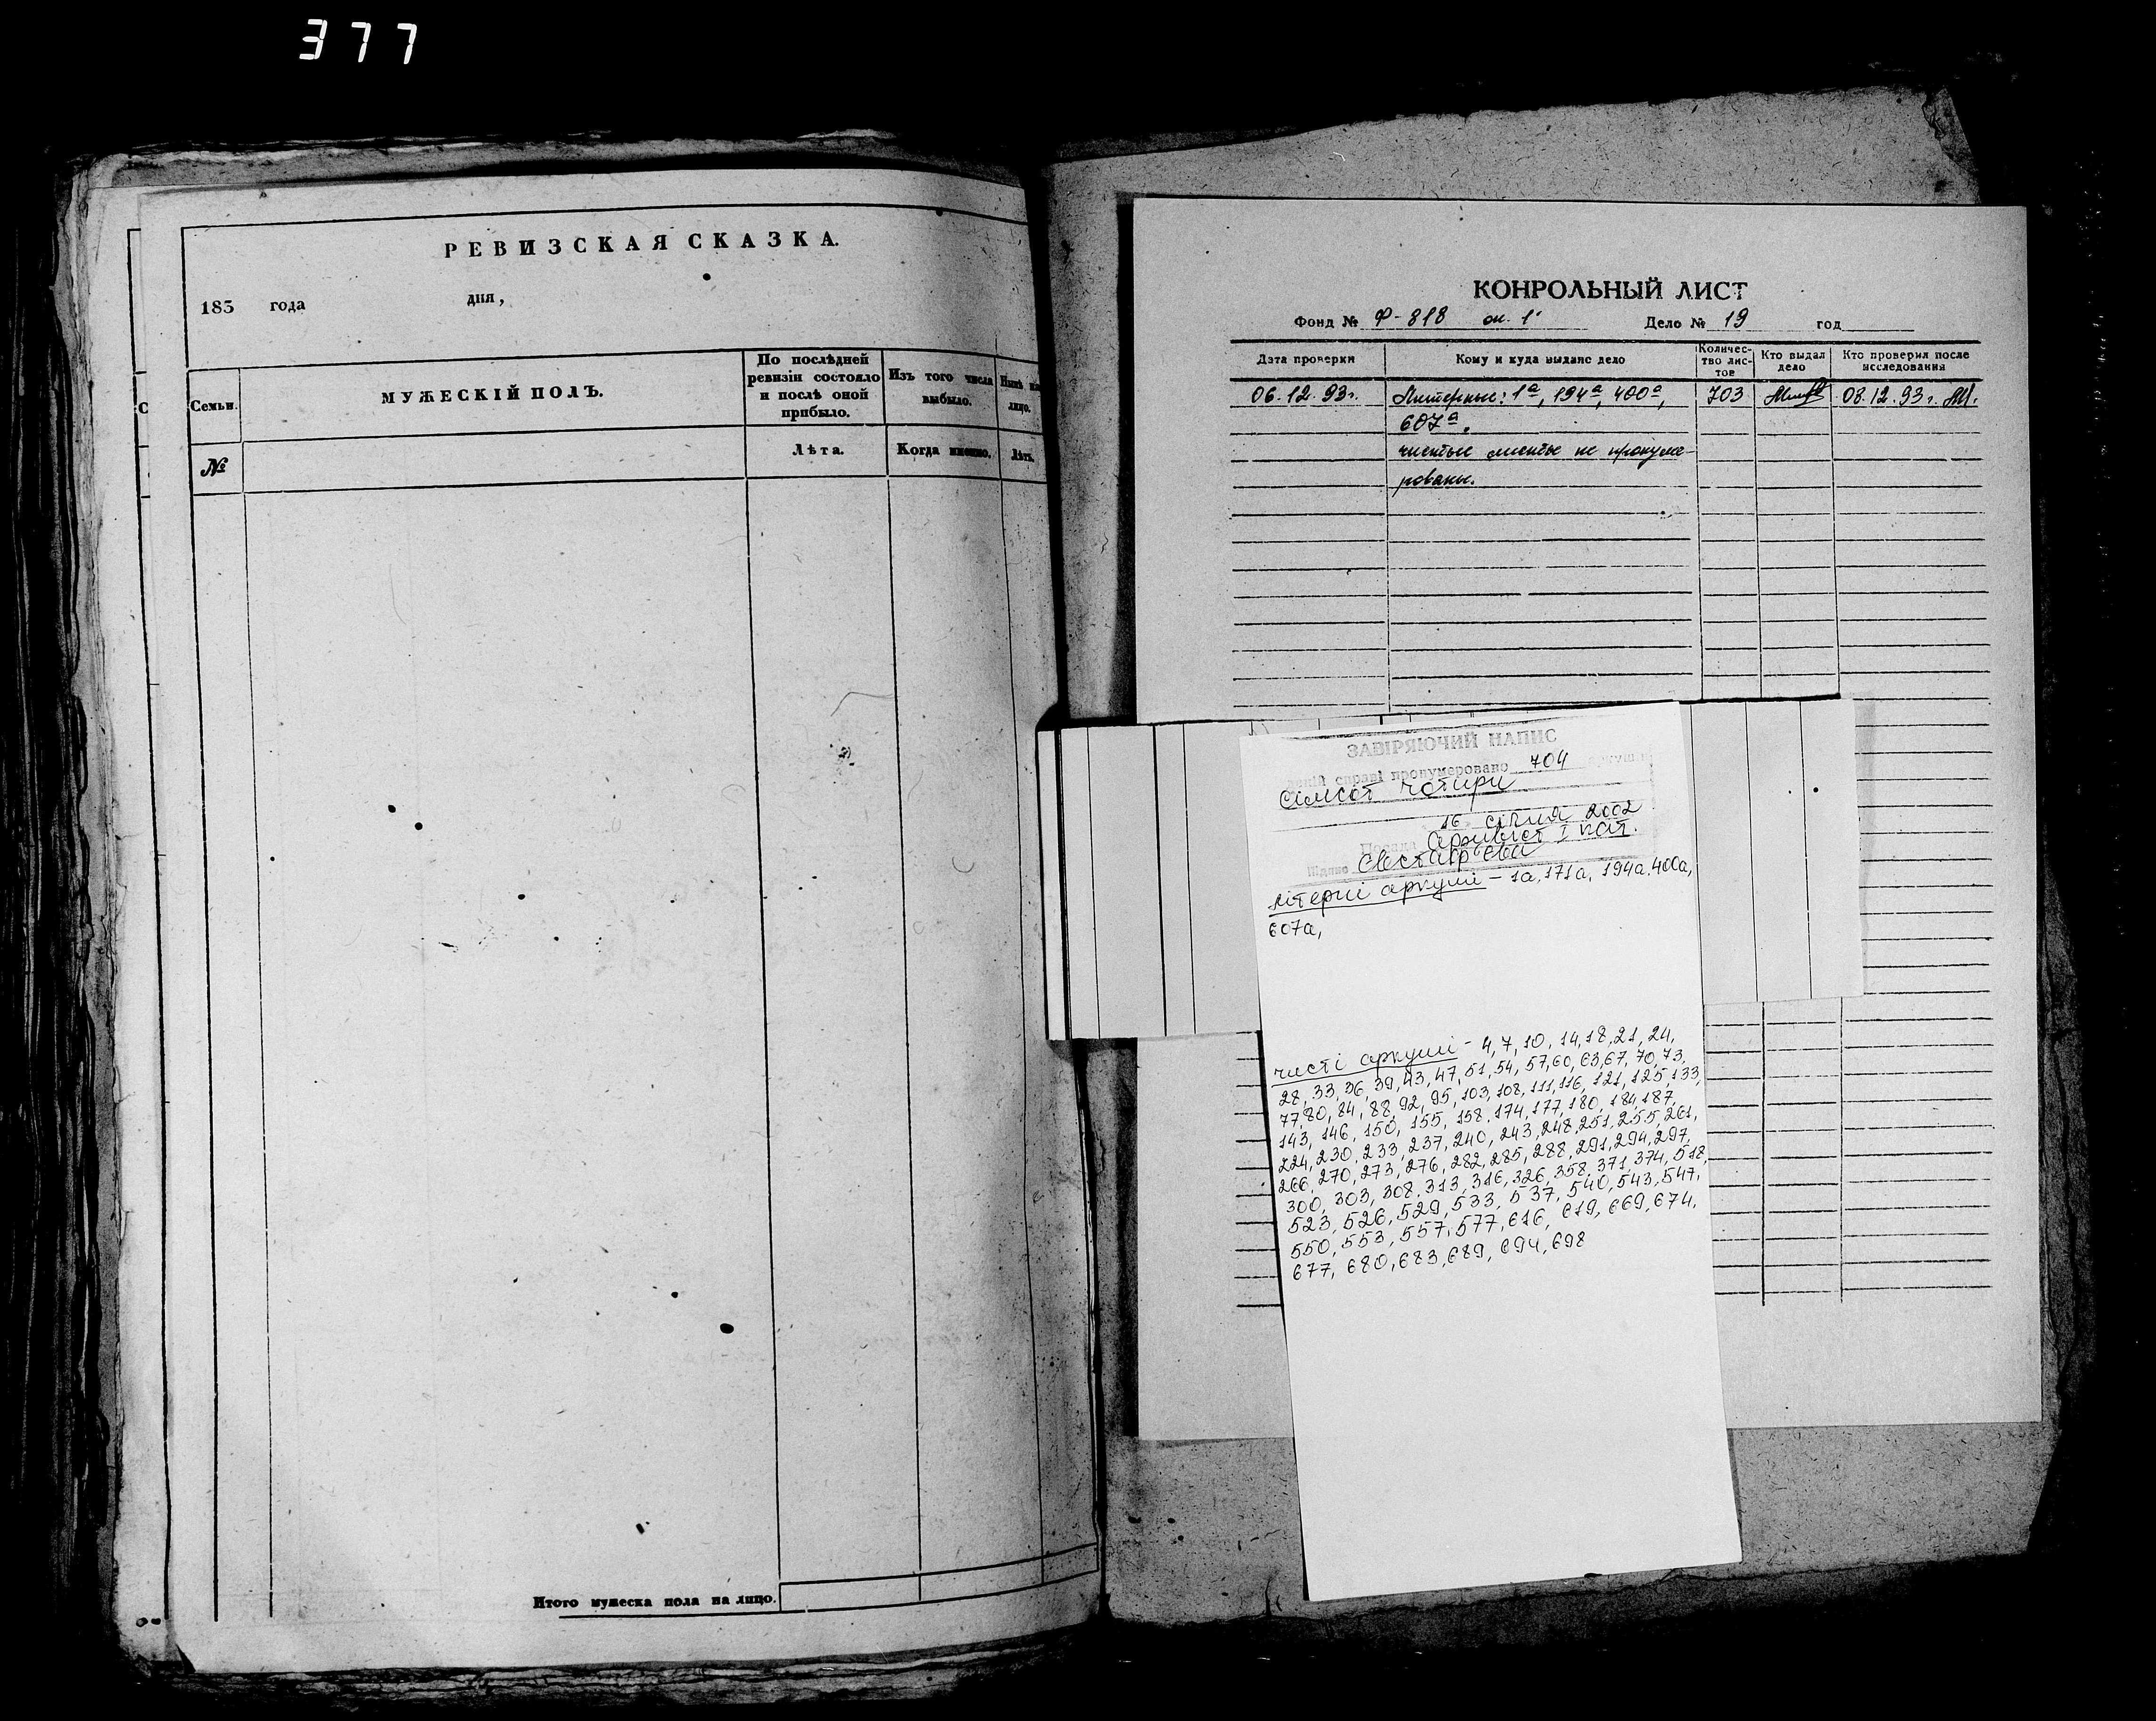 377
РЕВИЗСКАЯ СКАЗКА.
185 года дня,
Семьи.
МУЖЕСКІЙ ПОЛЪ.
По послѣдней ревизіи состояло и послѣ оной прибыло.
Изъ того числа выбыло.
Нынѣ на лицо.
№
Лѣта.
Когда именно.
Лѣтъ.
Итого мужеска пола на лицо.
С
КОНРОЛЬНЫЙ ЛИСТ
Фонд № Ф-818 оп. 1 Дело № 19 год
Дата проверки
Кому и куда выдано дело
Количес-
тво лис-
тов
Кто выдал
дело
Кто проверил после
исследования
06.12.93г. Литерные: 1а, 194а, 400а, 703 08.12.93г.
607а.
чистые листы не пронуме-
рованы.
ЗАВІРЯЮЧИЙ НАПИС
справі пронумеровано 704 аркуші
сімсот чотири
16 січня 2002
Посада Архивіст І кат.
Підпис Євстаф'єва
літерні аркуші - 1а, 171а, 194а, 400а,
607а,
чисті аркуші - 4, 7, 10, 14, 18, 21, 24,
28, 33, 36, 39, 43, 47, 51, 54, 57, 60, 63, 67, 70, 73,
77, 80, 84, 88, 92, 95, 103, 108, 111, 116, 121, 125, 133,
143, 146, 150, 155, 158, 174, 177, 180, 184, 187,
224, 230, 233, 237, 240, 243, 248, 251, 255, 261,
266, 270, 273, 276, 282, 285, 288, 291, 294, 297,
300, 303, 308, 313, 316, 326, 358, 371, 374, 518,
523, 526, 529, 533, 537, 540, 543, 547,
550, 553, 557, 577, 616, 619, 669, 674,
677, 680, 683, 689, 694, 698